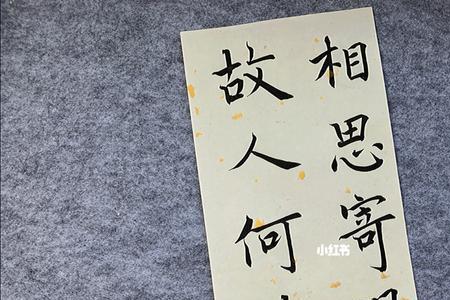 相思寄
故人何
小红书